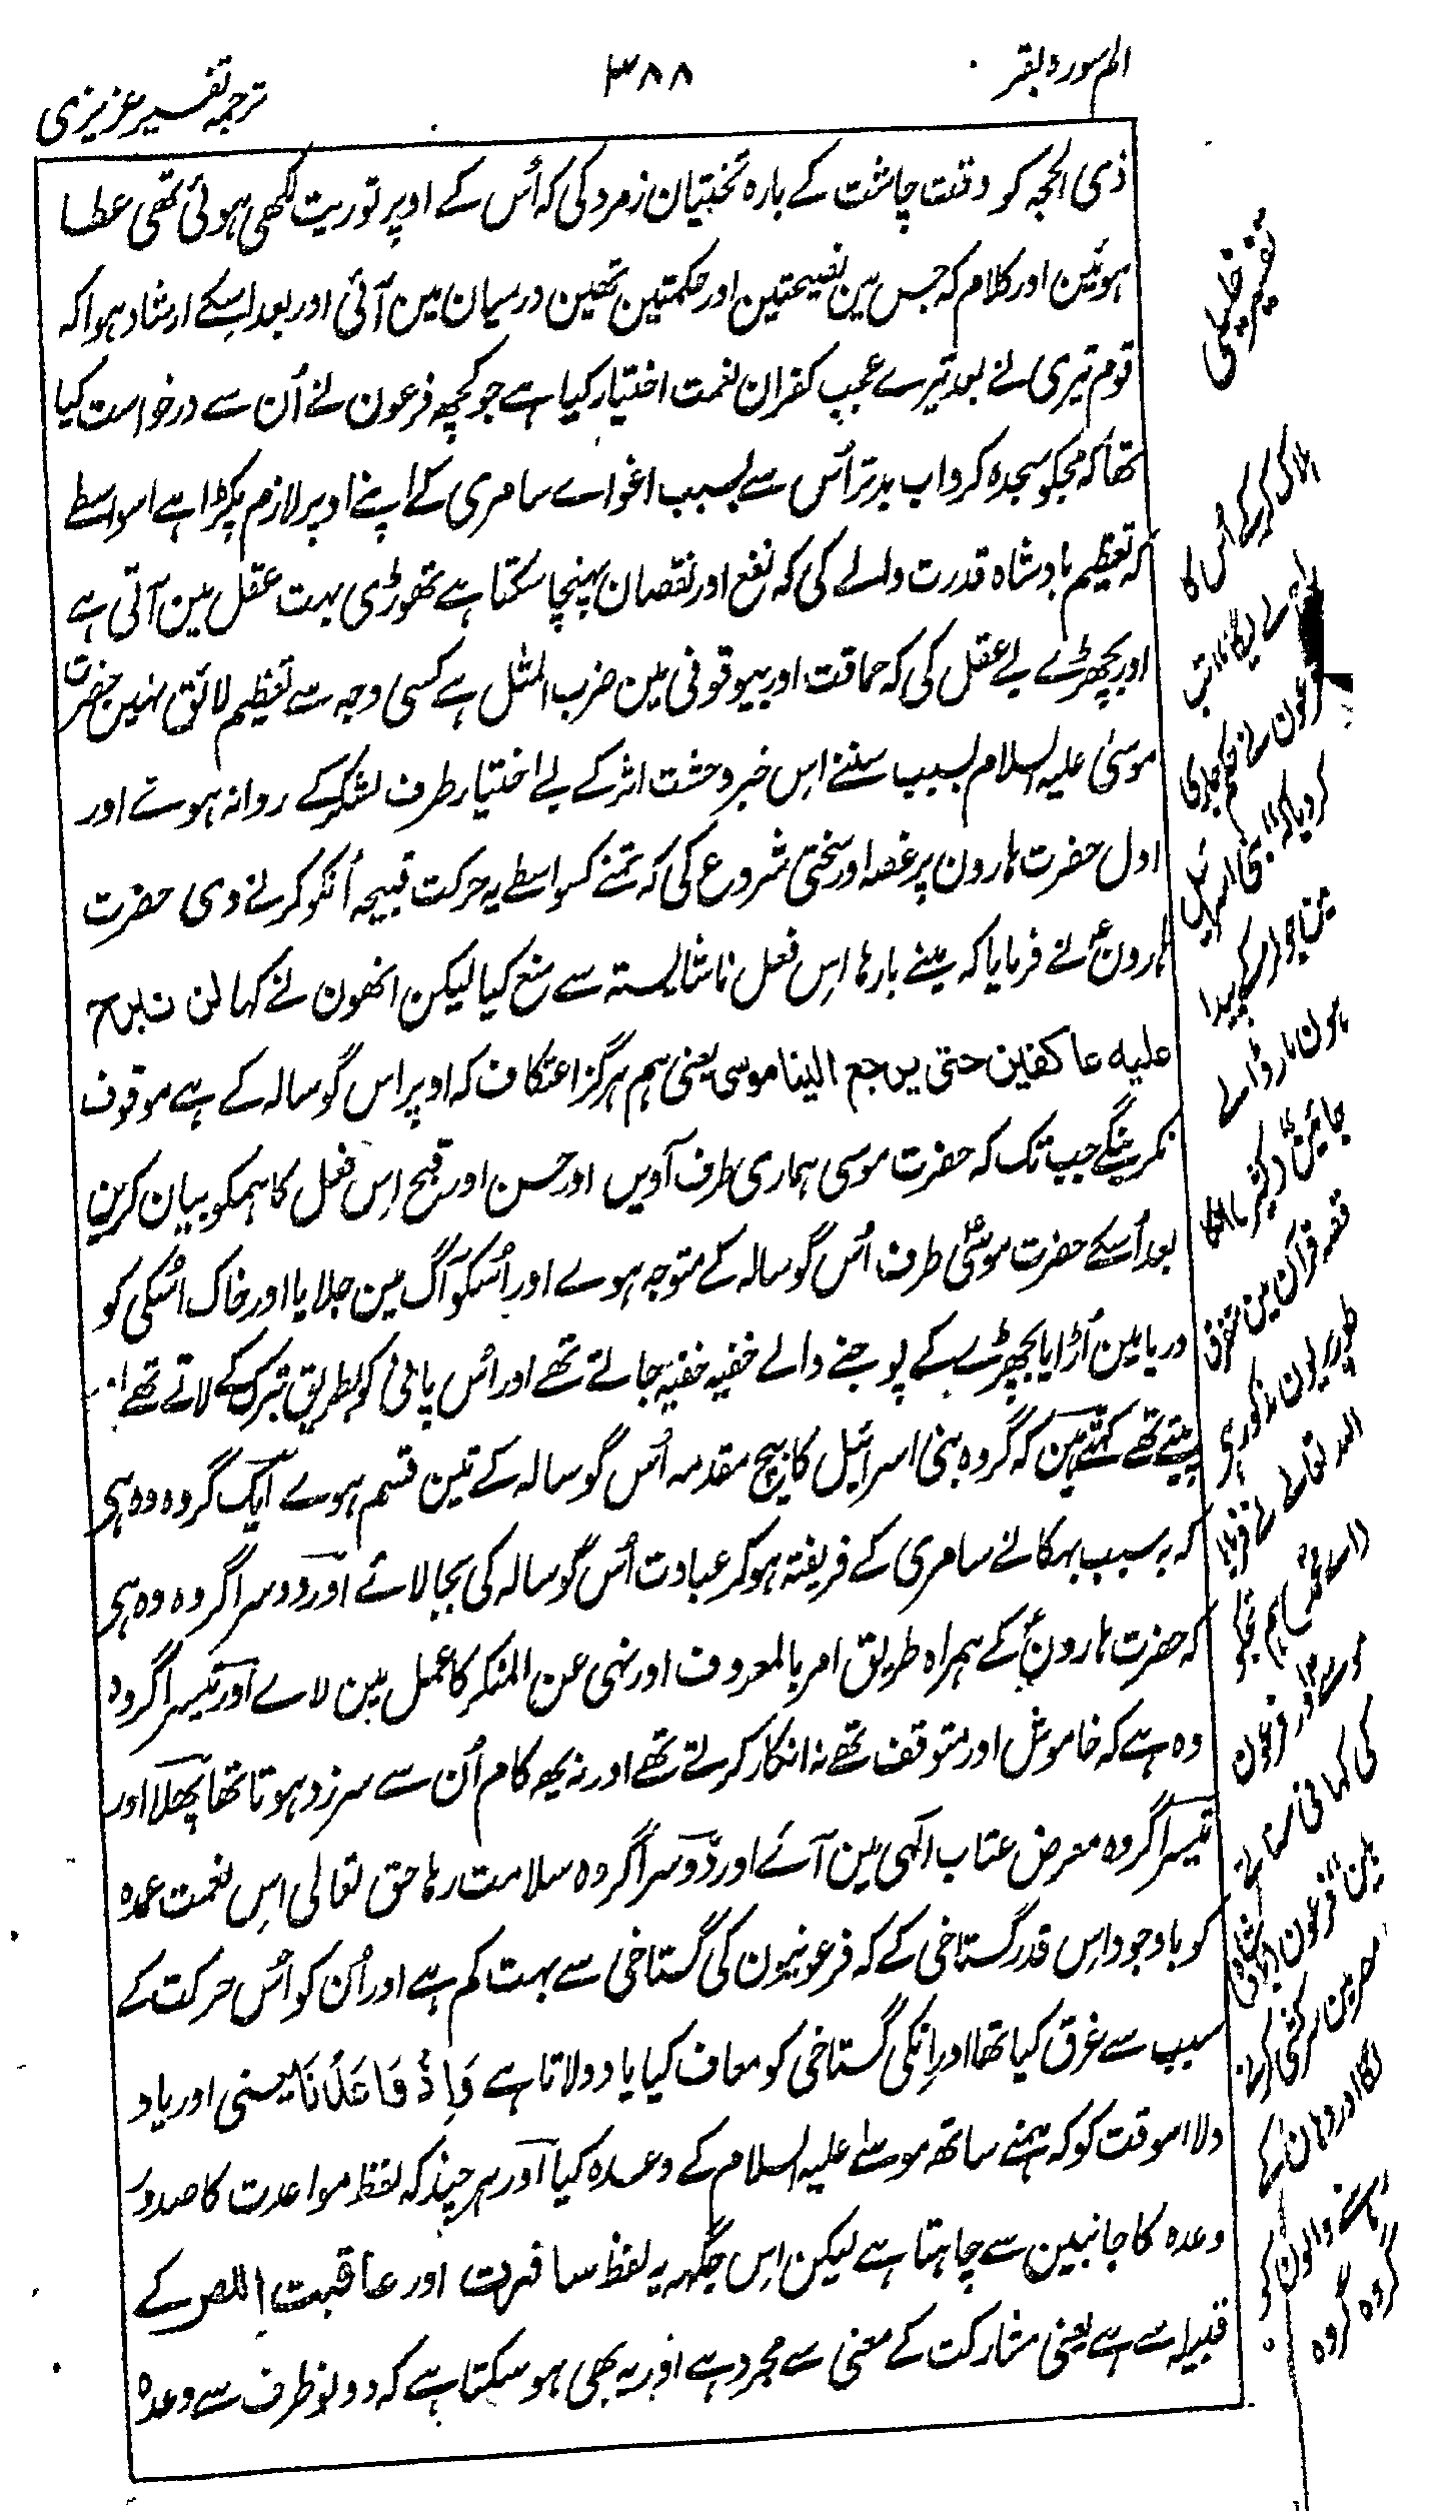 الم سورہ بقر
۳۸۸
ترجمہ تفسیر عزیزی
ذی الحجہ کو وقت چاشت کے بارہ تختیان زمرد کی کہ اُس کے اوپر توریت لکھی ہوئی تھی عطا
ہوئین اور کلام کہ جس مین نصیحتین اور حکمتین تھین درمیان مین آئی اور بعد اسکے ارشاد ہوا کہ
قوم تیری نے بعد تیرے عجب کفران نعمت اختیار کیا ہے جو کچھ فرعون نے اُن سے درخواست کیا
تھا کہ مجکو سجدہ کرو اب بدتر اُس سے بسبب اغواے سامری کے اپنے اوپر لازم پکڑا ہے اسواسطے
کہ تعظیم بادشاہ قدرت والے کی کہ نفع اور نقصان پہنچا سکتا ہے تھوڑی بہت عقل مین آتی ہے
اور بچھڑے بے عقل کی کہ حماقت اور بیوقوفی مین ضرب المثل ہے کسی وجہ سے تعظیم لائق نہین حضرت
موسیٰ علیہ السلام بسبب سننے اِس خبر وحشت اثر کے بے اختیار طرف لشکر کے روانہ ہوے اور
اول حضرت ہارون پر غصہ اور سختی شروع کی کہ تمنے کسواسطے یہ حرکت قبیحہ اُنکو کرنے دی حضرت
ہارونؑ نے فرمایا کہ مینے بارہا اِس فعل ناشایستہ سے منع کیا لیکن انھون نے کہا لن نبرح
علیہ عاکفین حتی یرجع الینا موسی یعنی ہم ہرگز اعتکاف کہ اوپر اس گوسالہ کے ہے موقوف
نکرینگے جب تک کہ حضرت موسی ہماری طرف آویں اور حسن اور قبح اِس فعل کا ہمکو بیان کرین
بعد اُسکے حضرت موسیٰؑ طرف اُس گوسالہ کے متوجہ ہوے اور اُسکو آگ مین جلایا اور خاک اُسکی کو
دریا مین اُڑایا بچھڑے کے پوجنے والے خفیہ خفیہ جاتے تھے اور اُس پانی کو بطریق تبرک کے لاتے تھے اور
پیتے تھے کہتے ہین کہ گروہ بنی اسرائیل کا بیچ مقدمہ اُس گوسالہ کے تین قسم ہوے ایک گروہ وہ ہی
کہ بہ سبب بہکانے سامری کے فریفتہ ہوکر عبادت اُس گوسالہ کی بجا لائے اور دوسرا گروہ وہ ہی
کہ حضرت ہارونؑ کے ہمراہ طریق امر بالمعروف اور نہی عن المنکر کا عمل مین لاے اور تیسرا گروہ
وہ ہے کہ خاموش اور متوقف تھے نہ انکار کرتے تھے اور نہ یہ کام اُن سے سرزد ہوتا تھا پچھلا اور
تیسرا گروہ معرض عتاب الٰہی مین آئے اور دوسرا گروہ سلامت رہا حق تعالی اِس نعمت عمدہ
کو باوجود اِس قدر گستاخی کے کہ فرعونیون کی گستاخی سے بہت کم ہے اور اُن کو اُس حرکت کے
سبب سے غرق کیا تھا اور اِنکی گستاخی کو معاف کیا یاد دولاتا ہے وَاِذْ وَاعَدْنَا یعنی اور یاد
دلا اسوقت کو کہ ہمنے ساتھ موسے علیہ السلام کے وعدہ کیا اور ہرچند کہ لفظ مواعدت کا صدور
وعدہ کا جانبین سے چاہتا ہے لیکن اِس جگہہ یہ لفظ سافرت اور عاقبت اللص کے
قبیلہ سے ہے یعنی مشارکت کے معنی سے مجرد ہے اور یہ بھی ہو سکتا ہے کہ دونو طرف سے وعدہ
ہلاک کرکے اُس کا
فرعون نے حکم جاری
کردیا کہ بنی اسرائیل
مین جو لڑکے پیدا
ہون مار ڈالے
جائین
قصہ قرآن مین متفرق
طور پر یون مذکور ہی
اللہ تعالے نے فرمایا
موسے اور فرعون
کی کہانی سناتے
ہین فرعون
گروہ گروہ